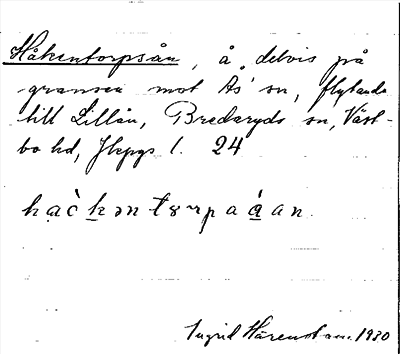 Håkentorpsån, å, delvis på
gränsen mot Ås sn, flytande
till Lillån, Bredaryds sn, Väst-
bo hd, Jkpgs l. 24
Ingrid Härenstam. 1930